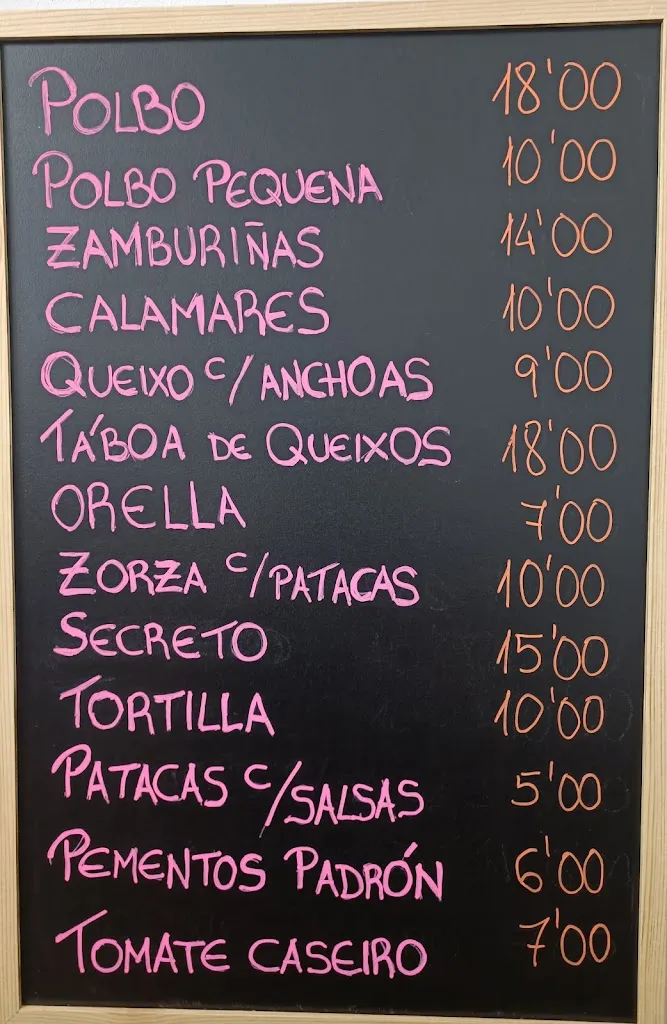 POLBO 18'00
POLBO PEQUENA 10'00
ZAMBURIÑAS 14'00
CALAMARES 10'00
QUEIXO C/ANCHOAS 9'00
TÁBOA DE QUEIXOS 18'00
ORELLA 7'00
ZORZA C/PATACAS 10'00
SECRETO 15'00
TORTILLA 10'00
PATACAS C/SALSAS 5'00
PEMENTOS PADRÓN 6'00
TOMATE CASEIRO 7'00